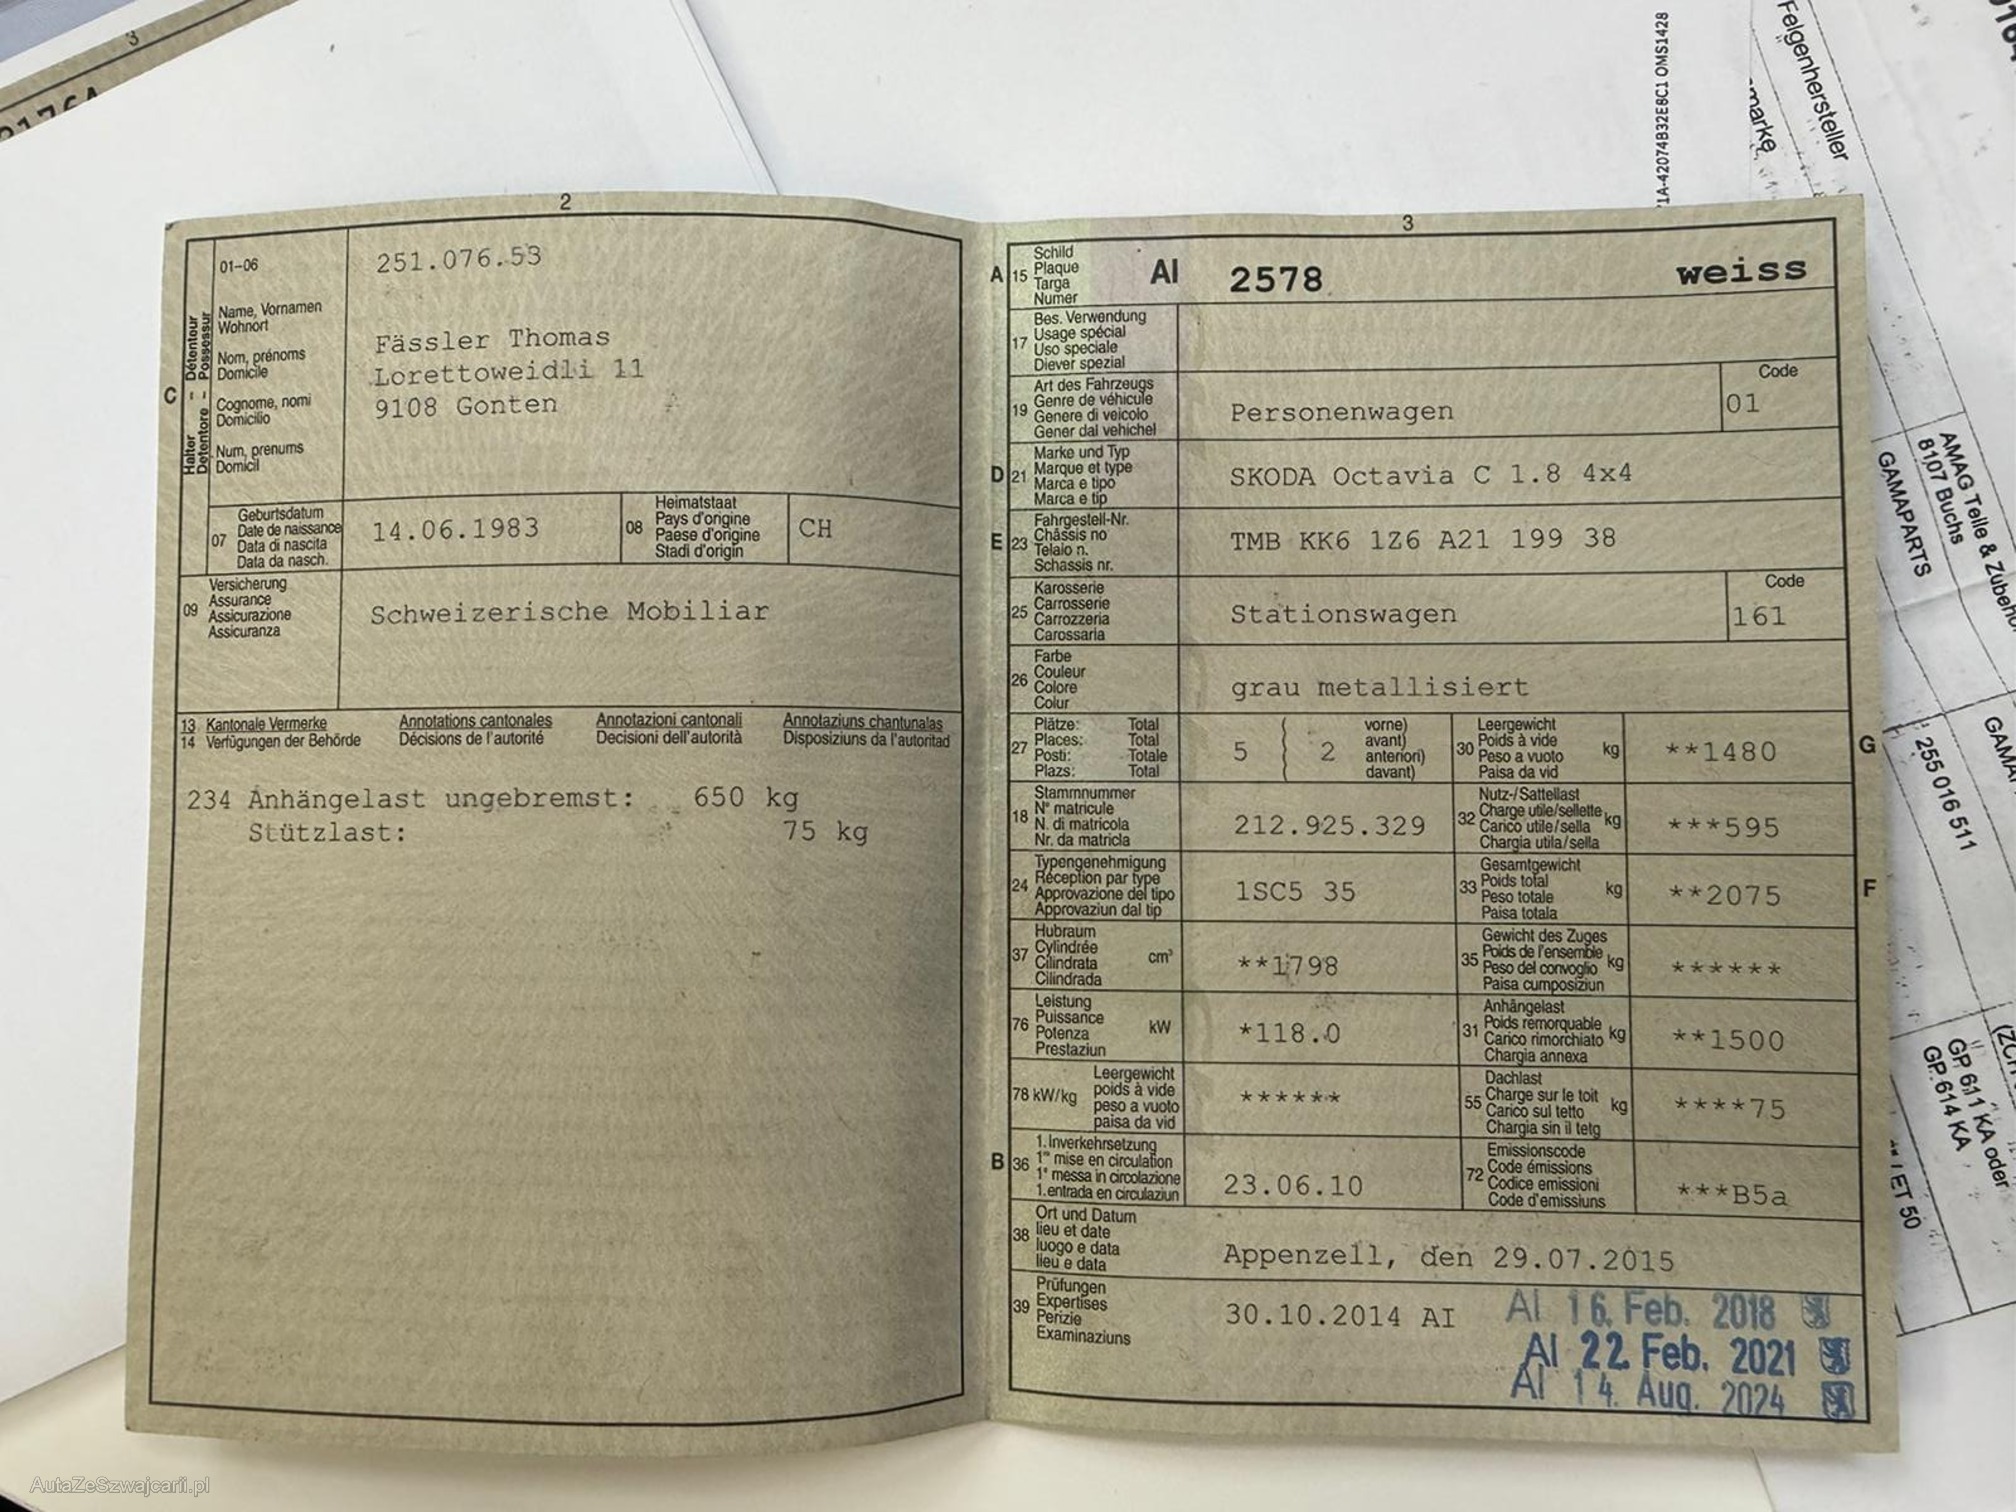 3
2
01–06
251.076.53
Name, Vornamen
Wohnort
Nom, prénoms
Domicile
Cognome, nomi
Domicilio
Num, prenums
Domicil
C
Halter – Détentour
Detentore – Possessur
Fässler Thomas
Lorettoweidli 11
9108 Gonten
07
Geburtsdatum
Date de naissance
Data di nascita
Data da nasch.
14.06.1983
08
Heimatstaat
Pays d'origine
Paese d'origine
Stadi d'origin
CH
09
Versicherung
Assurance
Assicurazione
Assicuranza
Schweizerische Mobiliar
13 Kantonale Vermerke Annotations cantonales Annotazioni cantonali Annotaziuns chantunalas
14 Verfügungen der Behörde Décisions de l'autorité Decisioni dell'autorità Disposiziuns da l'autoritad
234 Anhängelast ungebremst: 650 kg
Stützlast: 75 kg
3
A 15
Schild
Plaque
Targa
Numer
AI 2578 weiss
17
Bes. Verwendung
Usage spécial
Uso speciale
Diever spezial
19
Art des Fahrzeugs
Genre de véhicule
Genere di veicolo
Gener dal vehichel
Personenwagen
Code
01
D 21
Marke und Typ
Marque et type
Marca e tipo
Marca e tip
SKODA Octavia C 1.8 4x4
E 23
Fahrgestell-Nr.
Châssis no
Telaio n.
Schassis nr.
TMB KK6 1Z6 A21 199 38
25
Karosserie
Carrosserie
Carrozzeria
Carossaria
Stationswagen
Code
161
26
Farbe
Couleur
Colore
Colur
grau metallisiert
27
Plätze: Total
Places: Total
Posti: Totale
Plazs: Total
5 { 2
vorne)
avant)
anteriori)
davant)
30
Leergewicht
Poids à vide
Peso a vuoto
Paisa da vid
kg
**1480
G
18
Stammnummer
N° matricule
N. di matricola
Nr. da matricla
212.925.329
32
Nutz-/Sattellast
Charge utile/sellette
Carico utile/sella
Chargia utila/sella
kg
***595
24
Typengenehmigung
Réception par type
Approvazione del tipo
Approvaziun dal tip
1SC5 35
33
Gesamtgewicht
Poids total
Peso totale
Paisa totala
kg
**2075
F
37
Hubraum
Cylindrée
Cilindrata
Cilindrada
cm³
**1798
35
Gewicht des Zuges
Poids de l'ensemble
Peso del convoglio
Paisa cumposiziun
kg
******
76
Leistung
Puissance
Potenza
Prestaziun
kW
*118.0
31
Anhängelast
Poids remorquable
Carico rimorchiato
Chargia annexa
kg
**1500
78 kW/kg
Leergewicht
poids à vide
peso a vuoto
paisa da vid
******
55
Dachlast
Charge sur le toit
Carico sul tetto
Chargia sin il tetg
kg
****75
B 36
1. Inverkehrsetzung
1re mise en circulation
1a messa in circolazione
1. entrada en circulaziun
23.06.10
72
Emissionscode
Code émissions
Codice emissioni
Code d'emissiuns
***B5a
38
Ort und Datum
lieu et date
luogo e data
lieu e data
Appenzell, den 29.07.2015
39
Prüfungen
Expertises
Perizie
Examinaziuns
30.10.2014 AI
AI 16. Feb. 2018
AI 22. Feb. 2021
AI 14. Aug. 2024
1A-42074B32E8C1 OMS1428
Felgenhersteller
marke
AMAG Teile &
8107 Buchs
GAMAPARTS
255 016 511
GP 611 KA oder
GP 614 KA
ET 50
AutaZeSzwajcarii.pl